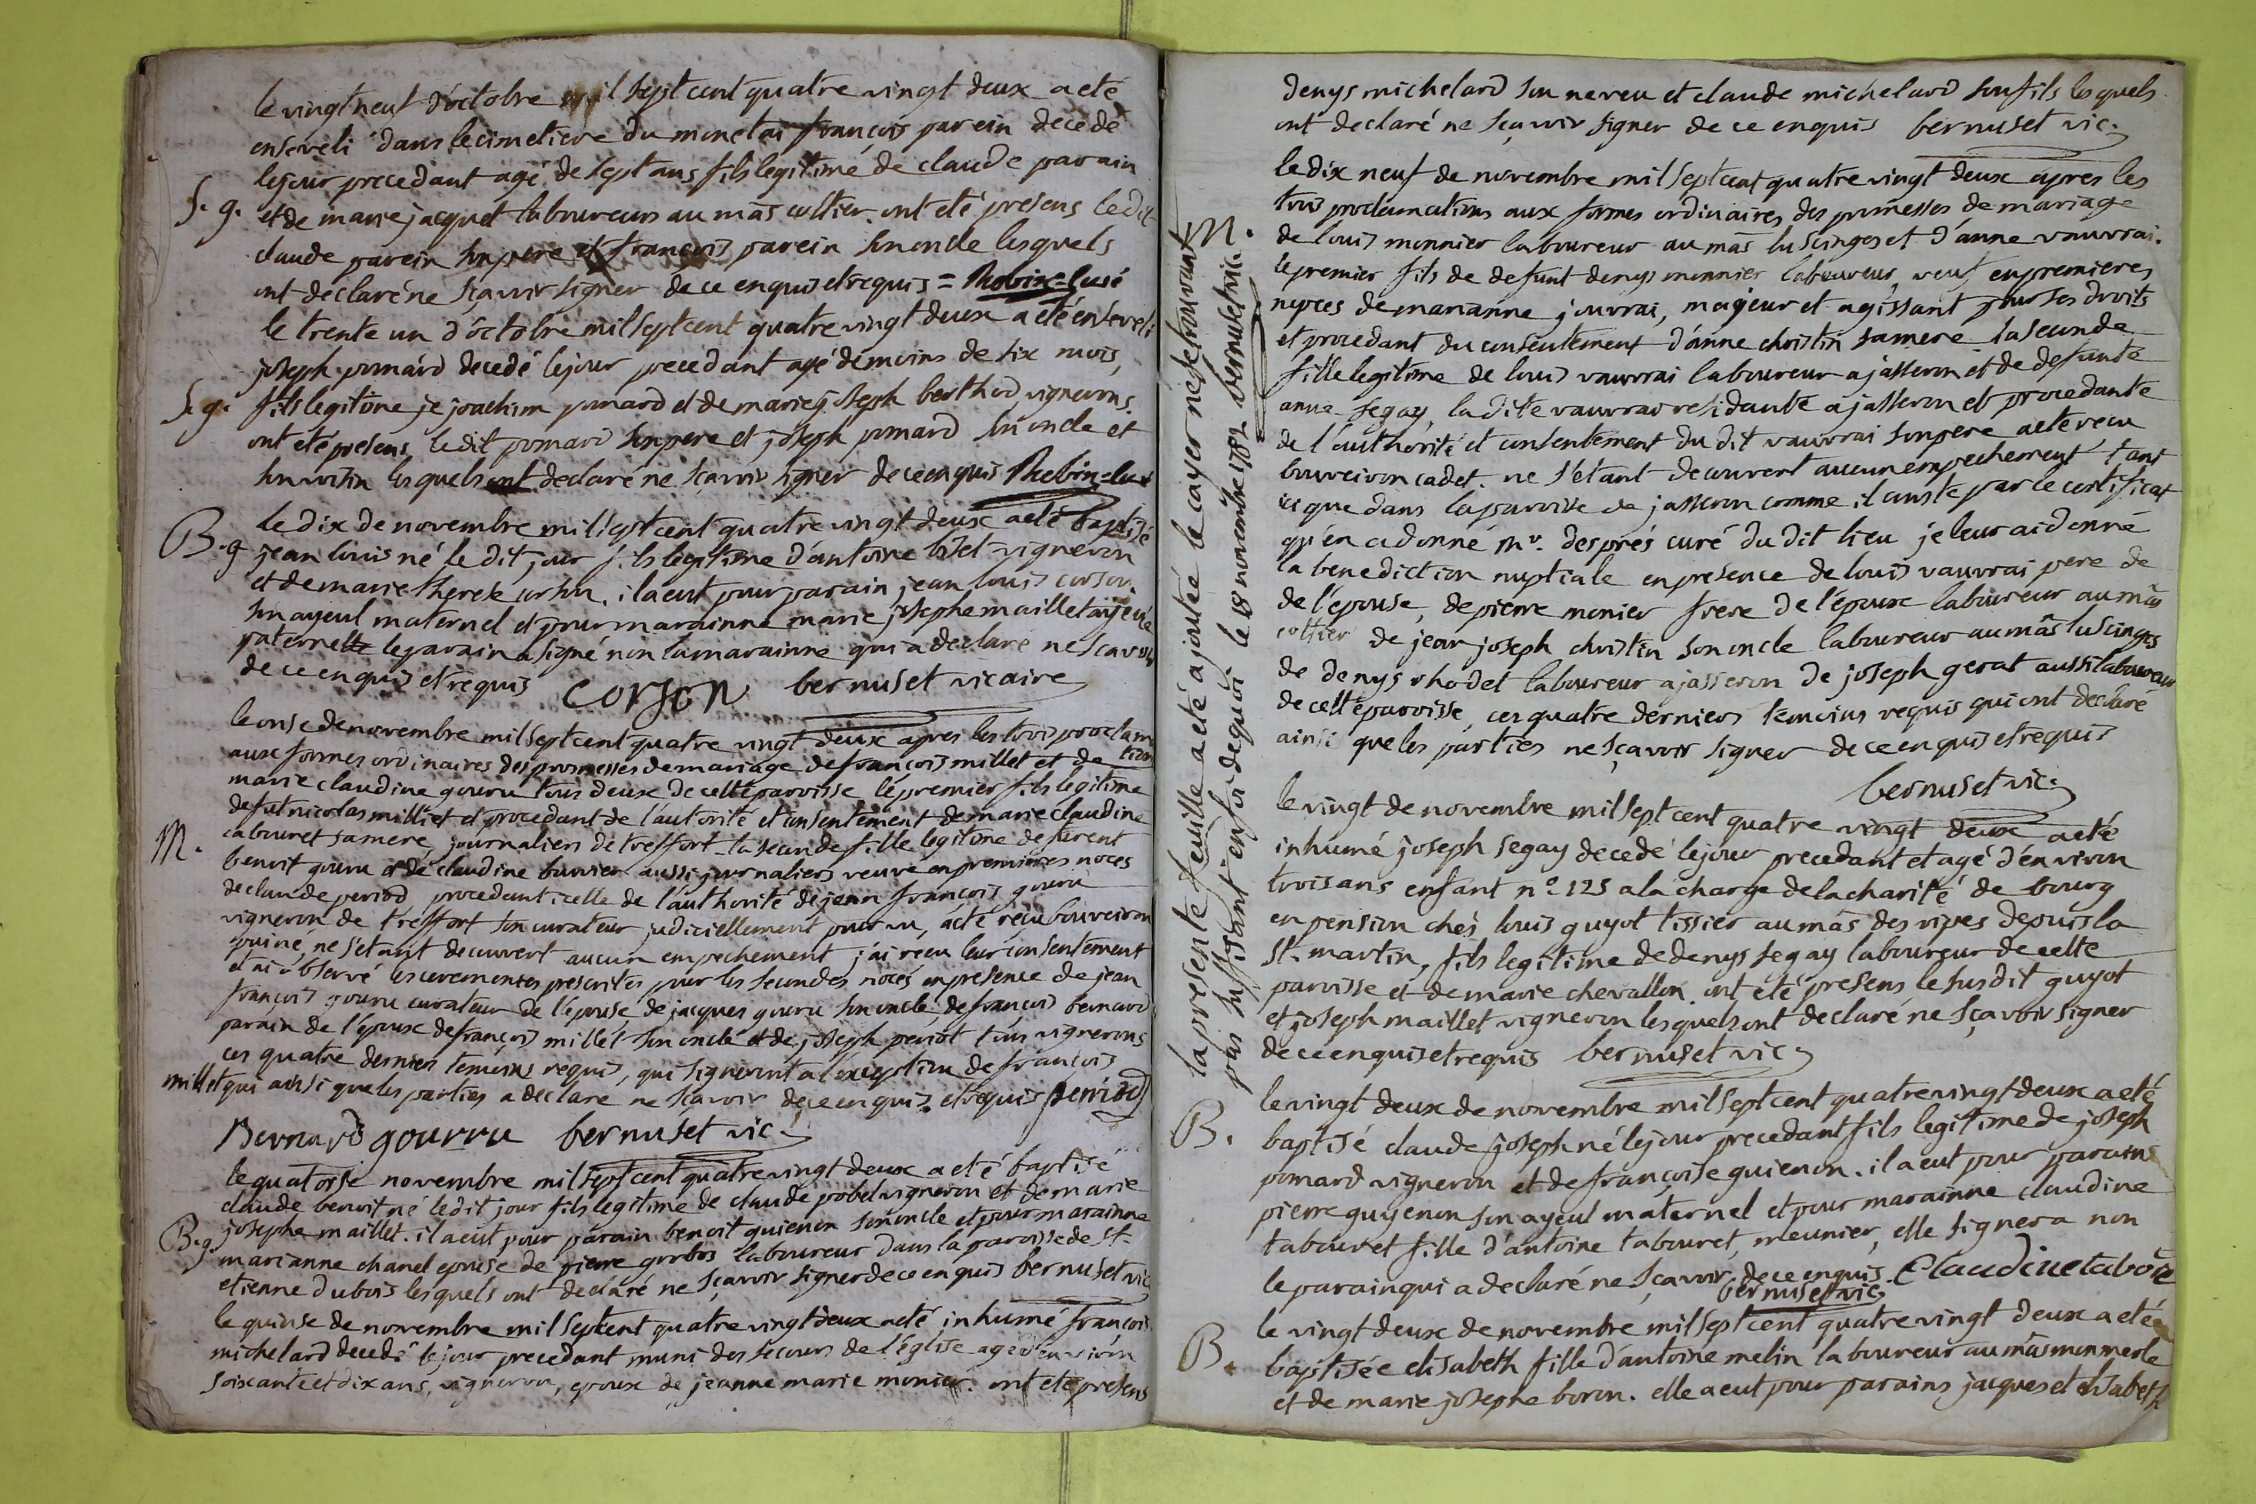 le vingt neuf d'octobre mil sept cent quatre vingt deux a eté
enseveli dans le cimetiere du monetai françois parein decedé
le jour precedant agé de sept ans fils legitime de claude parain
S. g. et de marie jacquet laboureurs au mas cottier. ont eté présens le dit
claude parein son pere et françois parein son oncle lesquels
ont déclaré ne sçavoir signer de ce enquis et requis =
le trente un d'octobre mil sept cent quatre vingt deux a eté enseveli
joseph pomard decedé le jour precedant agé de moins de six mois,
S. g. fils legitime je joachim pomard et de marie joseph berthod vignerons.
ont eté présens le dit pomard son pere et joseph pomard son oncle et
son voisin lesquels ont declaré ne sçavoir signer de ce enquis
B. g. le dix de novembre mil sept cent quatre vingt deux a eté baptisé
jean louis né le dit jour fils legitime d'antoine vigneron
et de marie therese corson. il a eut pour parain jean louis corson
son ayeul maternel et pour marainne marie josephe maillet ayeule
paternelle le parain a signé non la marainne qui a declaré ne scavoir
de ce enquis et requis corson bernuset vicaire
le onse de novembre mil sept cent quatre vingt deux apres les trois proclamations
aux formes ordinaires des promesses de mariage de françois millet et de
marie claudine gouru tous deux de cette paroisse le premier fils legitime
de fut nicolas milliet et procedant de l'autorité et consentement de marie claudine
M. tabouret sa mere, journaliers de treffort la seconde fille legitime de furent
benoit gouru et de claudine bouvier aussi journaliers veuve en premieres noces
de claude period, procedant icelle de l'authorité de jean françois gouru
vigneron de treffort son curateur judiciellement pourvu, acte recu bouveiron
puiné, ne s'etant decouvert aucun empechement j'ai recu leur consentement
et ai observé les ceremonies prescrites pour les secondes noces en presence de jean
françois gouru curateur de l'épouse de jacques gouru son oncle de françois bernard
parain de l'époux de françois millet son oncle et de joseph periot tous vignerons
ces quatre derniers temoins requis, qui signeront a l'exception de françois
millet qui ainsi que les parties a declaré ne sçavoir de ce enquis et requis period
Bernard gourru bernuset vic.
le quatorse novembre mil sept cent quatre vingt deux a eté baptisé
claude benoit né le dit jour fils legitime de claude pobel vigneron et de marie
B. g. josephe maillet. il a eut pour parain benoit guienon son oncle et pour marainne
marianne chanel epouse de pierre laboureur dans la paroisse de st.
etienne du bois lesquels ont declaré ne sçavoir signer de ce enquis bernuset vic.
le quinse de novembre mil sept cent quatre vingt deux a eté inhumé françois
michelard decedé le jour precedant muni des secours de l'église agé d'environ
soixante et dix ans, vigneron, epoux de jeanne marie monier. ont eté présens
denys michelard son neveu et claude michelard son fils lesquels
ont declaré ne sçavoir signer de ce enquis bernuset vic.
la presente feuille a eté ajoutée le cayer ne se trouvant
pas suffisant en foi de quoi le 18 novembre 1782 bernuset vic.
le dix neuf de novembre mil sept cent quatre vingt deux apres les
M. trois proclamations aux formes ordinaires des promesses de mariage
de louis monnier laboureur au mas lu scinges et d'anne vauvrai.
le premier fils de defunt denys monnier laboureur, veuf en premieres
nopces de marianne jouvrai, majeur et agissant pour ses droits
et procedant du consentement d'anne christin sa mere la seconde
fille legitime de louis vauvrai laboureur a jasseron et de defunte
anne segay, la dite vauvrai residante a jasseron et procedante
de l'authorité et consentement du dit vauvrai son pere acte recu
bouveiron cadet. ne s'etant decouvert aucun empechement tant
ici que dans la paroisse de jasseron comme il conste par le certificat
qu'en a donné Mr. després curé du dit lieu je leur ai donné
la benediction nuptiale en presence de louis vauvrai pere de
de l'épouse, de pierre monier frere de l'époux laboureur au mas
cottier de jean joseph christin son oncle laboureur au mas lu scinges
de denys rhodet laboureur a jasseron de joseph gerat aussi laboureur
de cette paroisse, ces quatre derniers temoins requis qui ont declaré
ainsi que les parties ne sçavoir signer de ce enquis et requis
bernuset vic.
le vingt de novembre mil sept cent quatre vingt deux a eté
inhumé joseph segay decedé le jour precedant et agé d'environ
trois ans enfant n° 125 a la charge de la charité de bourg
en pension chés louis guyot tissier au mas des vives depuis la
st. martin, fils legitime de denys segay laboureur de cette
paroisse et de marie chevallon. ont eté presens le susdit guyot
et joseph maillet vigneron lesquels ont declaré ne sçavoir signer
de ce enquis et requis bernuset vic.
le vingt deux de novembre mil sept cent quatre vingt deux a eté
B. baptisé claude joseph né le jour precedant fils legitime de joseph
pomard vigneron et de françoise guienon. il a eut pour parain
pierre guyenon son ayeul maternel et pour marainne claudine
tabouret fille d'antoine tabouret, meunier, elle signera non
le parain qui a declaré ne sçavoir de ce enquis. Claudine
bernuset vic.
le vingt deux de novembre mil sept cent quatre vingt deux a eté
B. baptisée elisabeth fille d'antoine melin laboureur au mas monmerle
et de marie josephe boron. elle a eut pour parains jacques et elisabeth